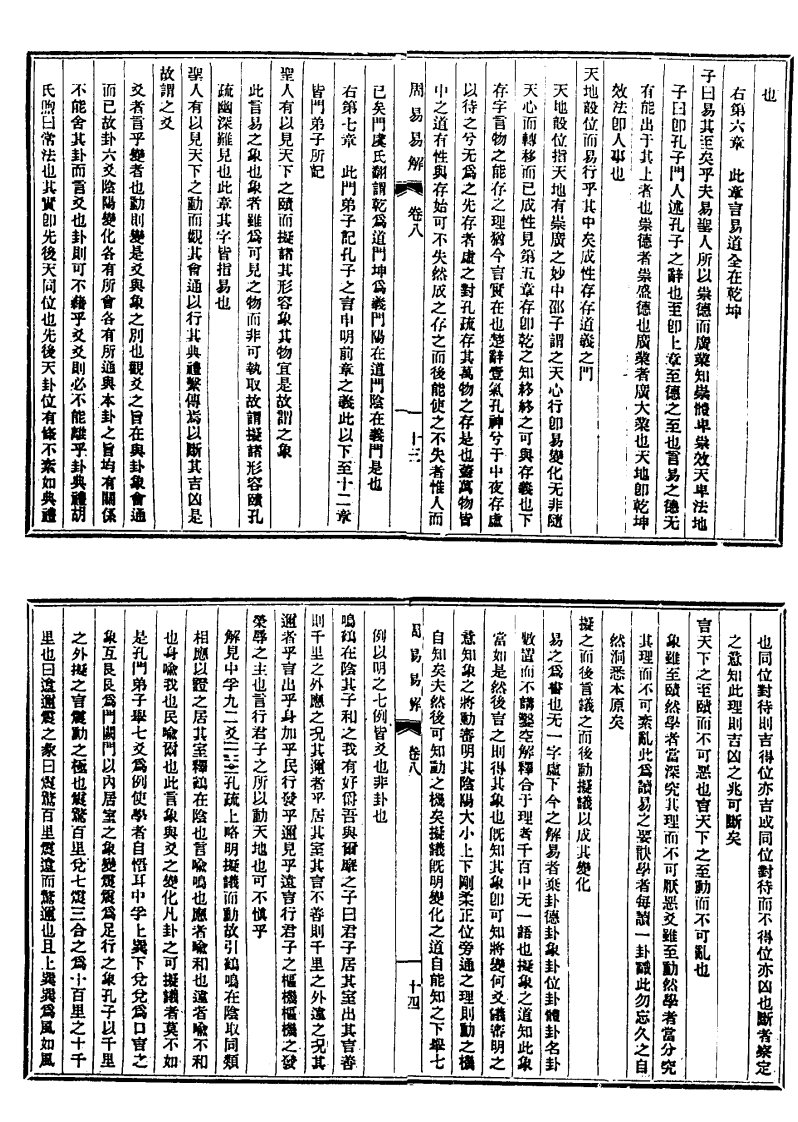 也
右第六章　此章言易道全在乾坤
子曰易其至矣乎夫易聖人所以崇德而廣業知崇禮卑崇效天卑法地
子曰卽孔子門人述孔子之辭也至卽上章至德之至也言易之德无
有能出于其上者也崇德者崇盛德也廣業者廣大業也天地卽乾坤
效法卽人事也
天地設位而易行乎其中矣成性存存道義之門
天地設位指天地有崇廣之妙中邵子謂之天心行卽易變化无非隨
天心而轉移而已成性見第五章存卽乾之知終終之可與存義也下
存字言物之能存之理猶今言實在也楚辭壹氣孔神兮于中夜存虛
以待之兮无爲之先存者虛之對孔疏存其萬物之存是也蓋萬物皆
中之道有性與存始可不失然成之存之而後能使之不失者惟人而
周易易解　卷八　十三
已矣門虞氏翻謂乾爲道門坤爲義門陽在道門陰在義門是也
右第七章　此門弟子記孔子之言申明前章之義此以下至十二章
皆門弟子所記
聖人有以見天下之賾而擬諸其形容象其物宜是故謂之象
此言易之象也象者雖爲可見之物而非可執取故謂擬諸形容賾孔
疏幽深難見也此章其字皆指易也
聖人有以見天下之動而觀其會通以行其典禮繫傳焉以斷其吉凶是
故謂之爻
爻者言乎變者也動則變是爻與象之別也觀爻之旨在與卦象會通
而已故卦六爻陰陽變化各有所會各有所通與本卦之旨均有關係
不能舍其卦而言爻也卦則可不藉乎爻爻則必不能離乎卦典禮胡
氏煦曰常法也其實卽先後天同位也先後天卦位有條不紊如典禮
也同位對待則吉得位亦吉或同位對待而不得位亦凶也斷者察定
之意知此理則吉凶之兆可斷矣
言天下之至賾而不可惡也言天下之至動而不可亂也
象雖至賾然學者當深究其理而不可厭惡爻雖至動然學者當分究
其理而不可紊亂此爲讀易之要訣學者每讀一卦識此勿忘久之自
然洞悉本原矣
擬之而後言議之而後動擬議以成其變化
易之爲書也无一字虛下今之解易者棄卦德卦象卦位卦體卦名卦
數置而不講鑿空解釋合于理者千百中无一語也擬象之道知此象
當如是然後言之則得其象也旣知其象卽可知將變何爻議審明之
意知象之將動審明其陰陽大小上下剛柔正位旁通之理則動之機
自知矣夫然後可知動之機矣擬議旣明變化之道自能知之下舉七
周易易解　卷八　十四
例以明之七例皆爻也非卦也
鳴鶴在陰其子和之我有好爵吾與爾靡之子曰君子居其室出其言善
則千里之外應之況其邇者乎居其室其言不善則千里之外違之況其
邇者乎言出乎身加乎民行發乎邇見乎遠言行君子之樞機樞機之發
榮辱之主也言行君子之所以動天地也可不愼乎
解見中孚九二爻孔疏上略明擬議而動故引鶴鳴在陰取同類
相應以證之居其室釋鶴在陰也言喩鳴也應者喩和也違者喩不和
也身喩我也民喩爾也此言象與爻之變化凡卦之可擬議者莫不如
是孔門弟子舉七爻爲例使學者自悟耳中孚上巽下兌兌爲口言之
象互艮艮爲門闕門以內居室之象變震震爲足行之象孔子以千里
之外擬之言震動之極也震驚百里兌七震三合之爲十百里之十千
里也曰遠邇震之象曰震驚百里驚遠而懼邇也且上巽巽爲風如風